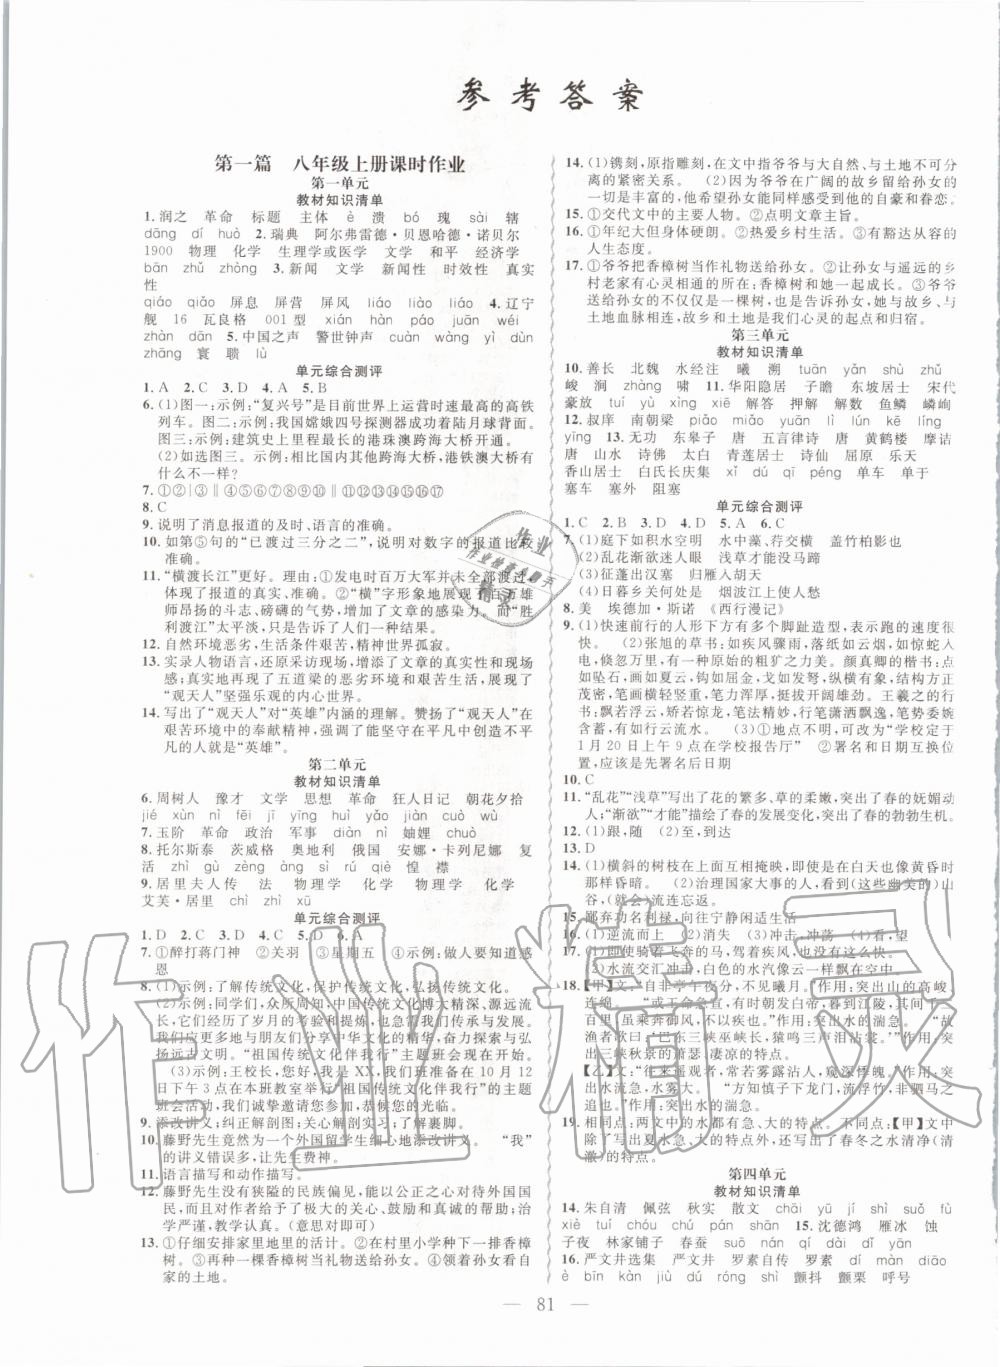 参考答案
第一篇 八年级上册课时作业
第一单元
教材知识清单
1. 润之 革命 标题 主体 è 溃 bó 瑰 sài 辖
dāng dí huó 2. 瑞典 阿尔弗雷德·贝恩哈德·诺贝尔
1900 物理 化学 生理学或医学 文学 和平 经济学
bān zhǔ zhòng 3. 新闻 文学 新闻性 时效性 真实
性
qiáo qiǎo 屏息 屏营 屏风 liáo liào liáo 4. 辽宁
舰 16 瓦良格 001型 xián hàn páo juān wéi
zhàn dān 5. 中国之声 警世钟声 yì wàn yì dùn
zhāng 寰 聩 lù
单元综合测评
1. A 2. C 3. D 4. A 5. B
6. (1)图一:示例:“复兴号”是目前世界上运营时速最高的高铁
列车。图二:示例:我国嫦娥四号探测器成功着陆月球背面。
图三:示例:建筑史上里程最长的港珠澳跨海大桥开通。
(2)如选图三。示例:相比北京世界跨海大桥,港铁澳大桥有
什么不一样?
7. ①②③|‖④⑤⑥⑦⑧⑨⑩⑪⑫⑬⑭⑮⑯⑰
8. C
9. 说明了消息报道的及时、语言的准确。
10. 如第⑤句的“已渡过三分之二”,说明对数字的报道比较
准确。
11. “横渡长江”更好。理由:①发电时百万大军并未全部渡过,
报道的真实、准确。②“横”字形象地展现了
师昂扬的斗志、磅礴的气势,增加了文章的感染力。而“胜
利渡江”太平淡,只是告诉了人们一种结果。
12. 自然环境恶劣,生活艰苦,精神世界的孤独。
13. 实录人物语言,还原采访现场,增添了文章的真实性和现场
感;真实地再现了五道梁的恶劣环境和艰苦生活,展现了
“观天人”坚强乐观的内心世界。
14. 写出了“观天人”对“英雄”内涵的理解。赞扬了“观天人”在
艰苦环境中的奉献精神,使人能感受到在平凡中创造不平
凡的人就是“英雄”。
第二单元
教材知识清单
6. 周树人 豫才 文学 思想 革命 狂人日记 朝花夕拾
jié xùn nì fēi jī yīng huì yǎo jiàn cuò wù
7. 玉阶 革命 政治 军事 diàn nì 妯娌 chuò
8. 托尔斯泰 茨威格 奥地利 俄国 安娜·卡列尼娜 复
活 zhì gù zèng àng sì rú qiè 惶 襟
9. 居里夫人传 法 物理学 化学 物理学 化学
艾芙·居里 chì zhì xū
单元综合测评
1. D 2. C 3. C 4. D 5. D 6. A
7. ①醉打蒋门神 ②关羽 ③星期五 ④示例:做人要知道感
恩
8. (1)示例:了解传统文化,保护传统文化,弘扬传统文化。
(2)示例:同学们,众所周知,中国传统文化博大精深、源远流
长,它们经历了岁月的考验和提炼,是中华民族的瑰宝。我们
应更多地与朋友们分享中华文化的精华,奋力探索与弘
扬远古文明。“祖国传统文化伴我行”主题班会现在开始。
(3)示例:王校长,您好,我是XX,我们班级在10月12
日下午3点在本班教室举行“祖国传统文化伴我行”的主题
班会,我们诚挚邀请您的参加,期待您的光临。
9. 添改讲义;订正解剖图;关心解剖实习;了解裹脚。
10. 藤野先生竟然为一个外国留学生细心地添改讲义。“我”
的讲义错误多,让先生费神。
11. 语言描写和动作描写。
12. 藤野先生没有狭隘的民族偏见,能以公正之心对待外国国
民,而且对作者给予了极大的关心、鼓励和真诚的帮助;治
学严谨,教学认真。(意思对即可)
13. ①仔细安排家里地里的活计。②在村里作调研,选中香樟
树。③再种一棵香樟树当作礼物送给孙女。④领着孙女看自
家的土地。
14. (1)镌刻,原指雕刻,在文中指爷爷与大自然、与土地不可分离
的紧密关系。 (2)因为爷爷在广阔的故乡留给孙女的
是香樟树,他希望孙女能同样感受到他的自豪和眷恋。
15. ①交代文中的主要人物。②点明文章主旨。
16. ①年纪大但身体硬朗。②热爱乡村生活。③有豁达从容的
人生态度。
17. ①爷爷把香樟树当作礼物送给孙女。②让孙女与遥远的乡
村老家有心灵相通的感觉,让香樟树和她一起成长。③爷爷
送给孙女的不仅仅是一棵树,也是告诉孙女,她与故乡、与土
地血脉相连,故乡和土地是我们心灵的起点和归宿。
第三单元
教材知识清单
10. 善长 北魏 水经注 曦 溯 tuān yǎn shù zhǔ
峻 涧 zhàng 啸 11. 华阳隐居 子瞻 东坡居士 宋代
豪放 tuí yù xìng xiē 解答 押解 解数 鱼鳞 嶙峋
12. 叔庠 南朝梁 piǎo miǎo yuān lì lún kē líng
yīng 13. 无功 东皋子 唐 五言律诗 唐 黄鹤楼 摩诘
唐 山水 诗佛 太白 青莲居士 诗仙 屈原 乐天
香山居士 白氏长庆集 xǐ dú qī péng 单车 单于
塞车 塞外 阻塞
单元综合测评
1. C 2. B 3. D 4. D 5. A 6. C
7. (1)庭下如积水空明 水中藻、荇交横 盖竹柏影也
(2)乱花渐欲迷人眼 浅草才能没马蹄
(3)征蓬出汉塞 归雁入胡天
(4)日暮乡关何处是 烟波江上使人愁
8. 美 埃德加·斯诺 《西行漫记》
9. (1)快速前行的人形下方有多个脚趾造型,表示跑的速度很
快。 (2)张旭的草书:如疾风骤雨,落纸如云烟,如惊蛇入
电,倚天而行,有一种原始的粗犷之力美。颜真卿的楷书:如
点如坠石,画如夏云,钩如屈金,戈如发弩,纵横有象,结构方
正茂密,笔画横轻竖重,笔力浑厚,挺拔开阔雄劲。王羲之的行
书:飘若浮云,矫若惊龙,笔法精妙,笔势潇洒飘逸,笔画秀美
含蓄,有如行云流水,动静结合。 (3)①地点不明,可改为“学校定于
1月20日上午9点在学校报告厅” ②署名和日期互换位
置,应该是先署名后日期
10. C
11. “乱花”“浅草”写出了花的繁多、草的柔嫩,突出了春的妩媚动
人;“渐欲”“才能”描绘了春的发展变化,突出了春的勃勃生机。
12. (1)跟,随 (2)至,到达
13. D
14. (1)横斜的树枝在上面互相掩映,即使是在白天也像黄昏时
那样昏暗。 (2)治理国家大事的人,看到(这些幽美的)山
谷,(就会)流连忘返。
15. 鄙弃功名利禄,向往宁静闲适生活
16. (1)逆流而上 (2)消失 (3)冲击,冲荡 (4)看,望
17. (1)即使骑着飞奔的马,驾着疾风,也没有这么快。
(2)水流交汇冲击,白色的水汽像云一样飘在空中。
18. 【甲】文:“自非亭午夜分,不见曦月。”作用:突出山的高峻
连绵。 “或王命急宣,有时朝发白帝,暮到江陵,其间千二
百里,虽乘奔御风,不以疾也。”作用:突出水的湍急。 “故
渔者歌曰:巴东三峡巫峡长,猿鸣三声泪沾裳。”作用:突
出三峡秋景的萧瑟、凄凉的特点。
【乙】文:“往来遥观者,常若霰雾沾人,窥深悸魄。”作用:突出
水流湍急,水雾大。 “方知慎子下龙门,流浮竹,非驷马之
追也。”作用:突出水的湍急。
19. 相同点:两文中的水都有湍急、大的特点。不同点:【甲】文中
除了写出夏水急、大的特点外,还写出了春冬之水清净(清
澈)的特点。
第四单元
教材知识清单
14. 朱自清 佩弦 秋实 散文 chāi yū jí shì suǒ fù
xiè tuí chóu chú pán shān 15. 沈德鸿 雁冰 蚀
子夜 林家铺子 春蚕 suō nǎn qí àn dài dǐ yǎn
16. 严文井选集 严文井 罗素自传 罗素 dí màn rán
è bīn kàn jiù dú róng shì 颤抖 颤栗 呼号
— 81 —